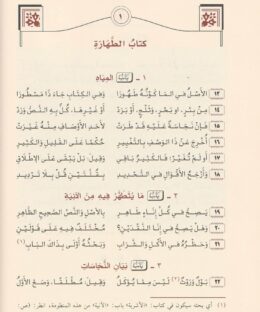 ١
كتاب الطهارة
١ - باب المياه
١٣ الأصل في الما كونه طهورا وفي الكتاب جاء ذا مسطورا
١٤ من بئر او بحر، وثلج، أو برد أو غيرها، كل به النص ورد
١٥ فإن نجاسة عليه قد طرت لأحد الأوصاف منه غيرت
١٦ أخرج عن ذا الوصف بالتغيير حكما على القليل والكثير
١٧ أو لم تغير: فالكثير باقي وقيل بل يبقى على الإطلاق
١٨ وأرجح الأقوال في التحديد بقلتين قل بلا ترديد
٢ - باب ما يتطهر فيه من الآنية
١٩ يصح في كل إناء طاهر بالأصل والنص الصحيح الظاهر
٢٠ وصح في
مختلف فيه على قولين
٢١ وحظره في الأكل والشراب وبحثه أولى بذاك الباب(١)
٣ - باب بيان النجاسات
٢٢ بول وروث(٢) ليس مما يؤكل وقيل مطلقا، وصح الأول
(١) أي بحثه سيكون في كتاب: «الأشربة» باب: «الآنية» من هذه المنظومة، انظر: (ص